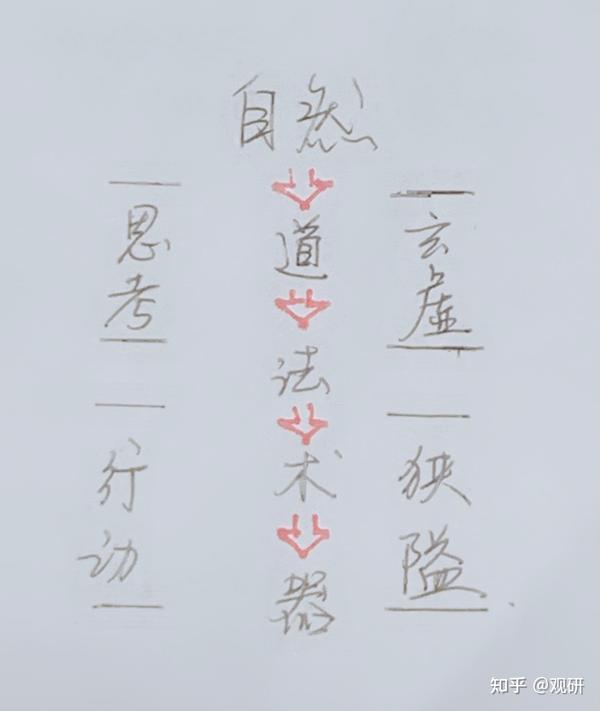 自然
思考
行动
道
法
术
器
玄虚
狭隘
知乎 @观研